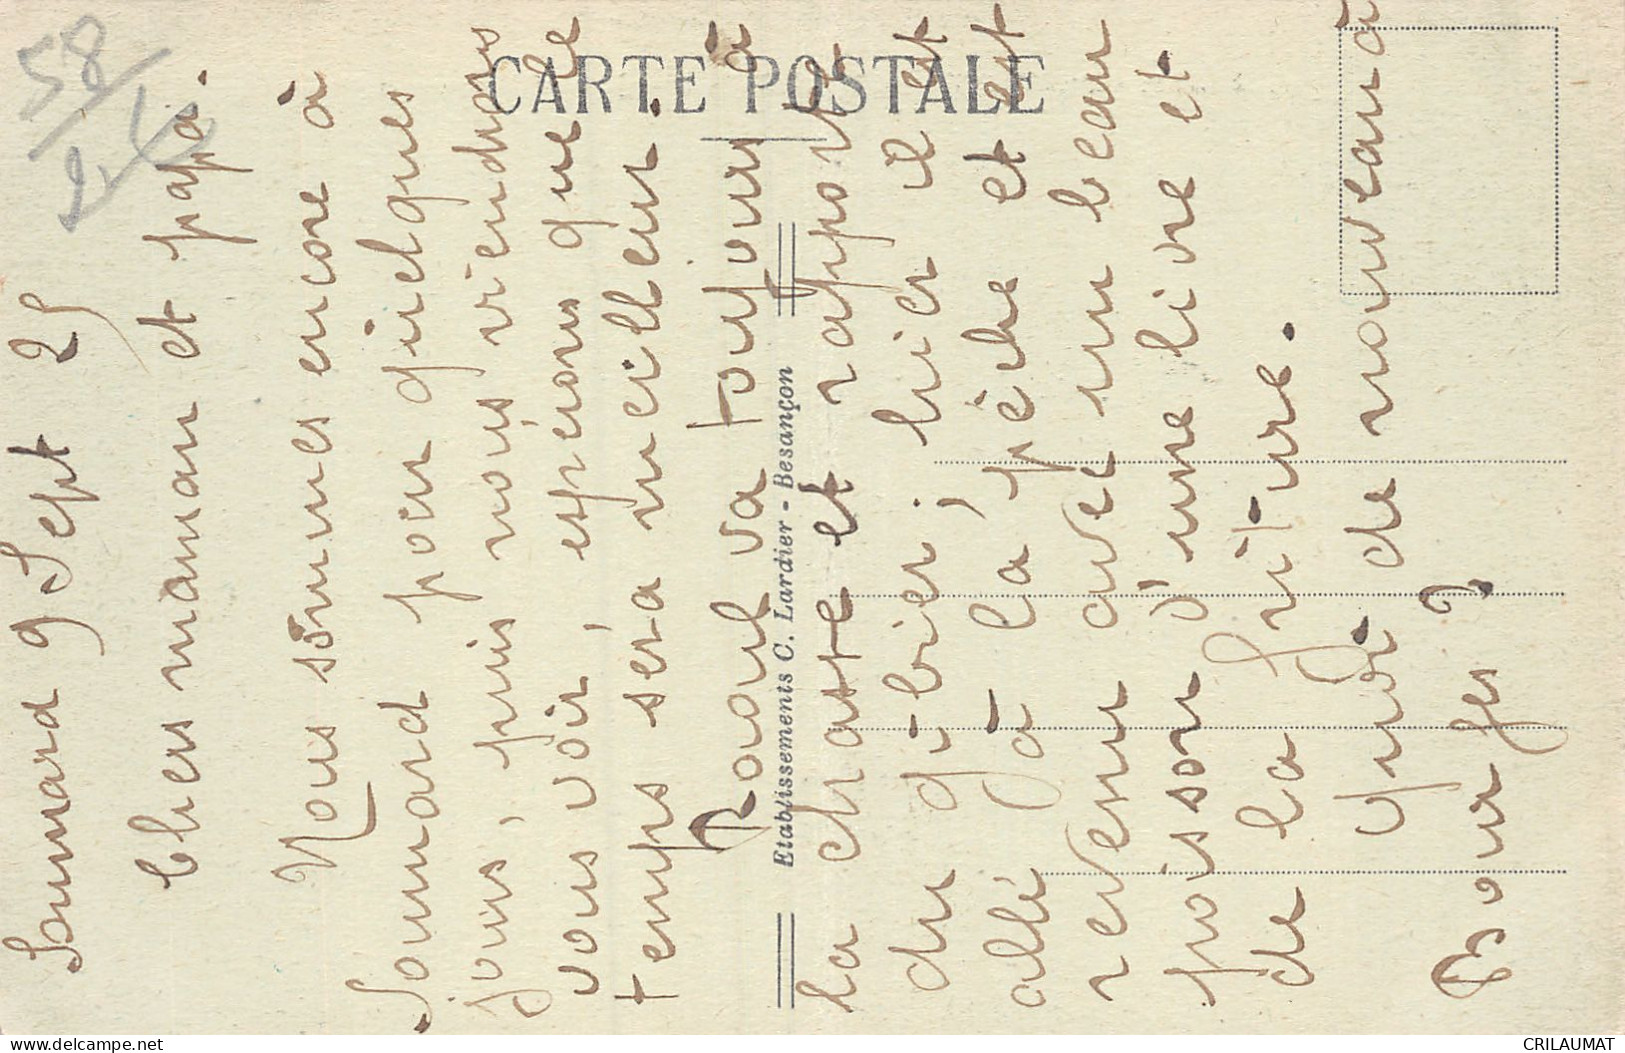 CARTE POSTALE
Etablissements C. Lardier - Besançon
58
Soumard 9 Sept 25
Cher maman et papa.
Nous sommes encore à
Soumard pour quelques
jours, puis nous viendrons
vous voir, espérons que le
temps sera meilleur.
Raoul va toujours à
la chasse et rapporte
du gibier; hier il est
allé à la pêche et est
revenu avec un beau
poisson d'une livre et
de la friture.
Quoi de nouveau à
Bourges?
www.delcampe.net
CRILAUMAT